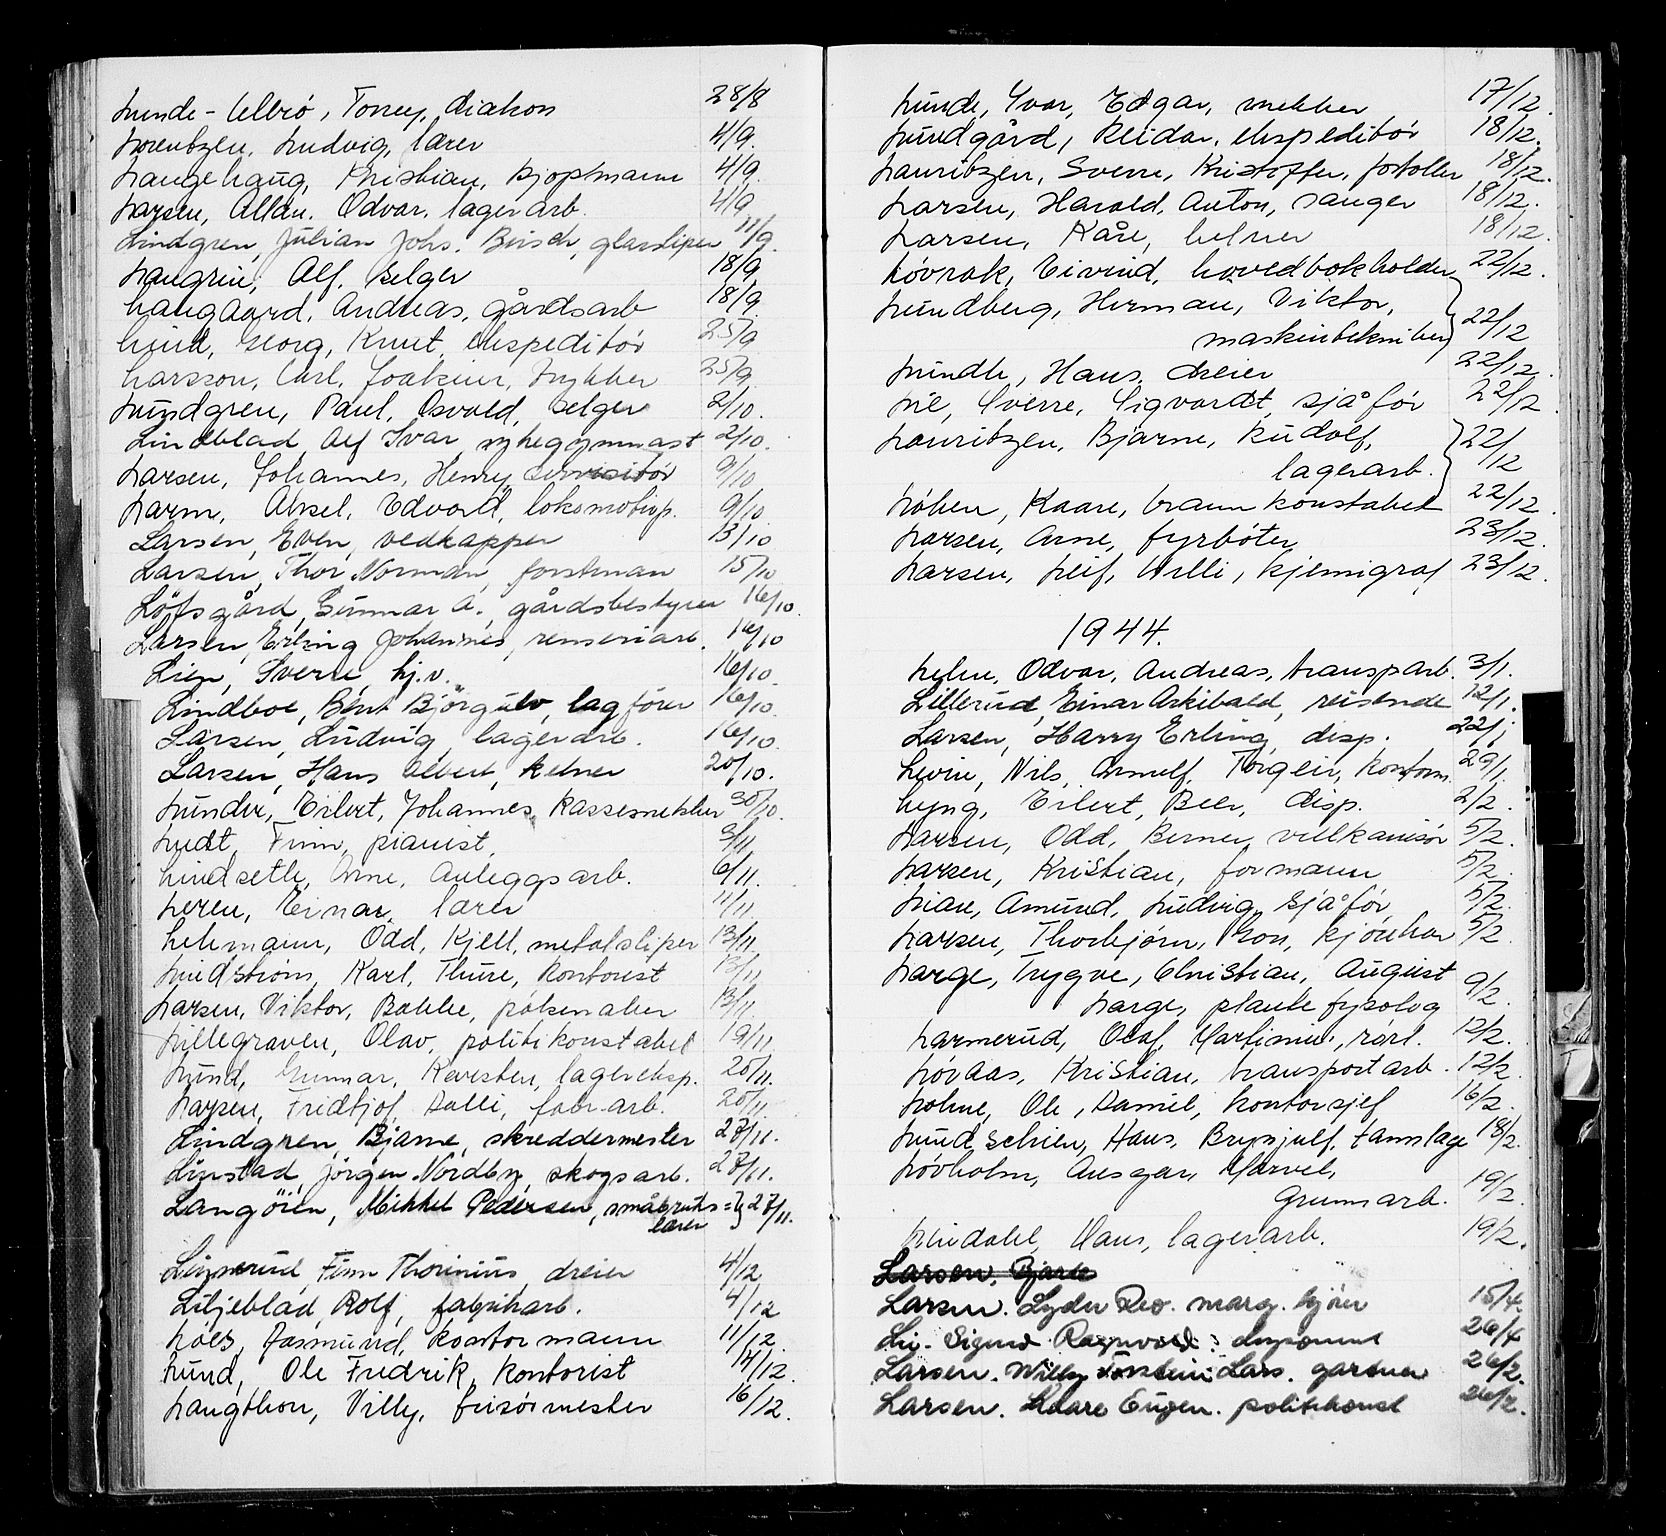 Lunde - Ulbrö, Torrey, diakon 28/8
Lorentzen, Ludvig, lærer 4/9.
Langehaug, Khristian, kjøpmann 4/9.
Larsen, Allan, Odvar, lagerarb. 4/9
Lindgren, Julian Johs. Birsch, glassliper 11/9.
Laugrin, Alf, selger 18/9
Langaard, Andreas, gårdsarb 18/9.
Lund, Georg, Knut, ekspeditör 25/9
Larsson, Carl, Joakim, trykker 25/9.
Lundgren, Paul, Osvald, selger 2/10.
Lindblad Alf Ivar sykegymnast 2/10.
Larsen, Johannes, Henry, servisitör 9/10
Larm, Aksel, Edvard, lokomotivp. 9/10.
Larsen, Even, vedkapper 13/10
Larsen, Thor Norman, forstman 15/10
Löfsgård, Gunnar A., gårdsbestyrer 16/10.
Larsen, Erling Johannes, renseriarb. 16/10
Lien, Sverre, hj.v. 16/10.
Lindboe, Bent Björgulv, lagförer 16/10.
Larsen, Ludvig, lagerarb. 16/10.
Larsen, Hans Albert, kelner 20/10.
Lunder, Eilert, Johannes, kassesnekker 30/10.
Ludt, Finn, pianist, 5/11
Lindseth, Arne, Anleggsarb. 6/11.
Leren, Einar, lærer 11/11
Lehmann, Odd, Kjell, metalsliper 13/11
Lindström, Karl, Thure, kontorist 13/11
Larsen, Viktor, Bakke, pølsemaker 13/11.
Lillegraven, Olav, politikonstabel 19/11
Lund, Gunnar, Karsten, lagereksp. 20/11.
Larsen, Fridtjof, Dalli, fabr.arb. 20/11
Lindgren, Bjarne, skreddermester 27/11.
Linstad, Jörgen Nordby, skogsarb. 27/11.
Langöien, Mikkel Pedersen, småbruks= } 27/11.
lærer
Linnerud Finn Thorinius dreier 4/12
Liljeblad, Rolf, fabrikarb. 4/12
Loes, Aasmund, kontormann 11/12
Lund, Ole Fredrik, kontorist 14/12.
Langthon, Villy, frisörmester 16/12.
Lunde, Ivar, Edgar, snekker 17/12.
Lundgård, Reidar, ekspeditör 18/12.
Lauritzen, Sverre, Kristoffer, fortoller 18/12.
Larsen, Harald, Anton, sanger 18/12.
Larsen, Kåre, kelner 18/12.
Lövrak, Eivind, hovedbokholder 22/12.
Lundberg, Herman, Viktor,
maskintekniker } 22/12
Lundh, Hans, dreier 22/12
Lie, Sverre, Sigvardt, sjåför 22/12
Lauritzen, Bjarne, Rudolf,
lagerarb. } 22/12
Löken, Kaare, brannkonstabel 22/12.
Larsen, Arne, fyrböter 23/12.
Larsen, Leif, Willi, kjemigraf 23/12.
1944.
Lehn, Odvar, Andreas, transp.arb. 3/1.
Lillerud, Einar Arkibald, reisende 12/1.
Larsen, Harry Erling, disp. 22/1
Levin, Nils, Arnulf, Torgeir, kontorm. 29/1.
Lyng, Eilert, Beer, disp. 2/2.
Larsen, Odd, Berner, vulkanisör 5/2.
Larsen, Kristian, formann 5/2.
Lian, Amund, Ludvig, sjåför, 5/2.
Larsen, Thorbjörn, Thon, kjörekar 5/2
Large, Trygve, Christian, August
Large, plantefysolog 9/2.
Larmerud, Olaf, Martinius, rörl. 12/2.
Lövaas, Kristian, transportarb. 12/2
Lohne, Ole, Daniel, kontorsjef 16/2
Lundschien, Hans, Brynjulf, tannlæge 18/2.
Lövholm, Ansgar, Marvel,
Grunnarb. 19/2.
Leirdahl, Hans, lagerarb. 19/2.
Larsen, Bjarte
Larsen. Lyder Reo. marg. kjörer 15/4.
Lie. Sigurd Ragnvald. disponent 26/4
Larsen. Willy Torstein Lars. gartner 26/2.
Larsen. Kaare Eugen. politikonst 26/2.